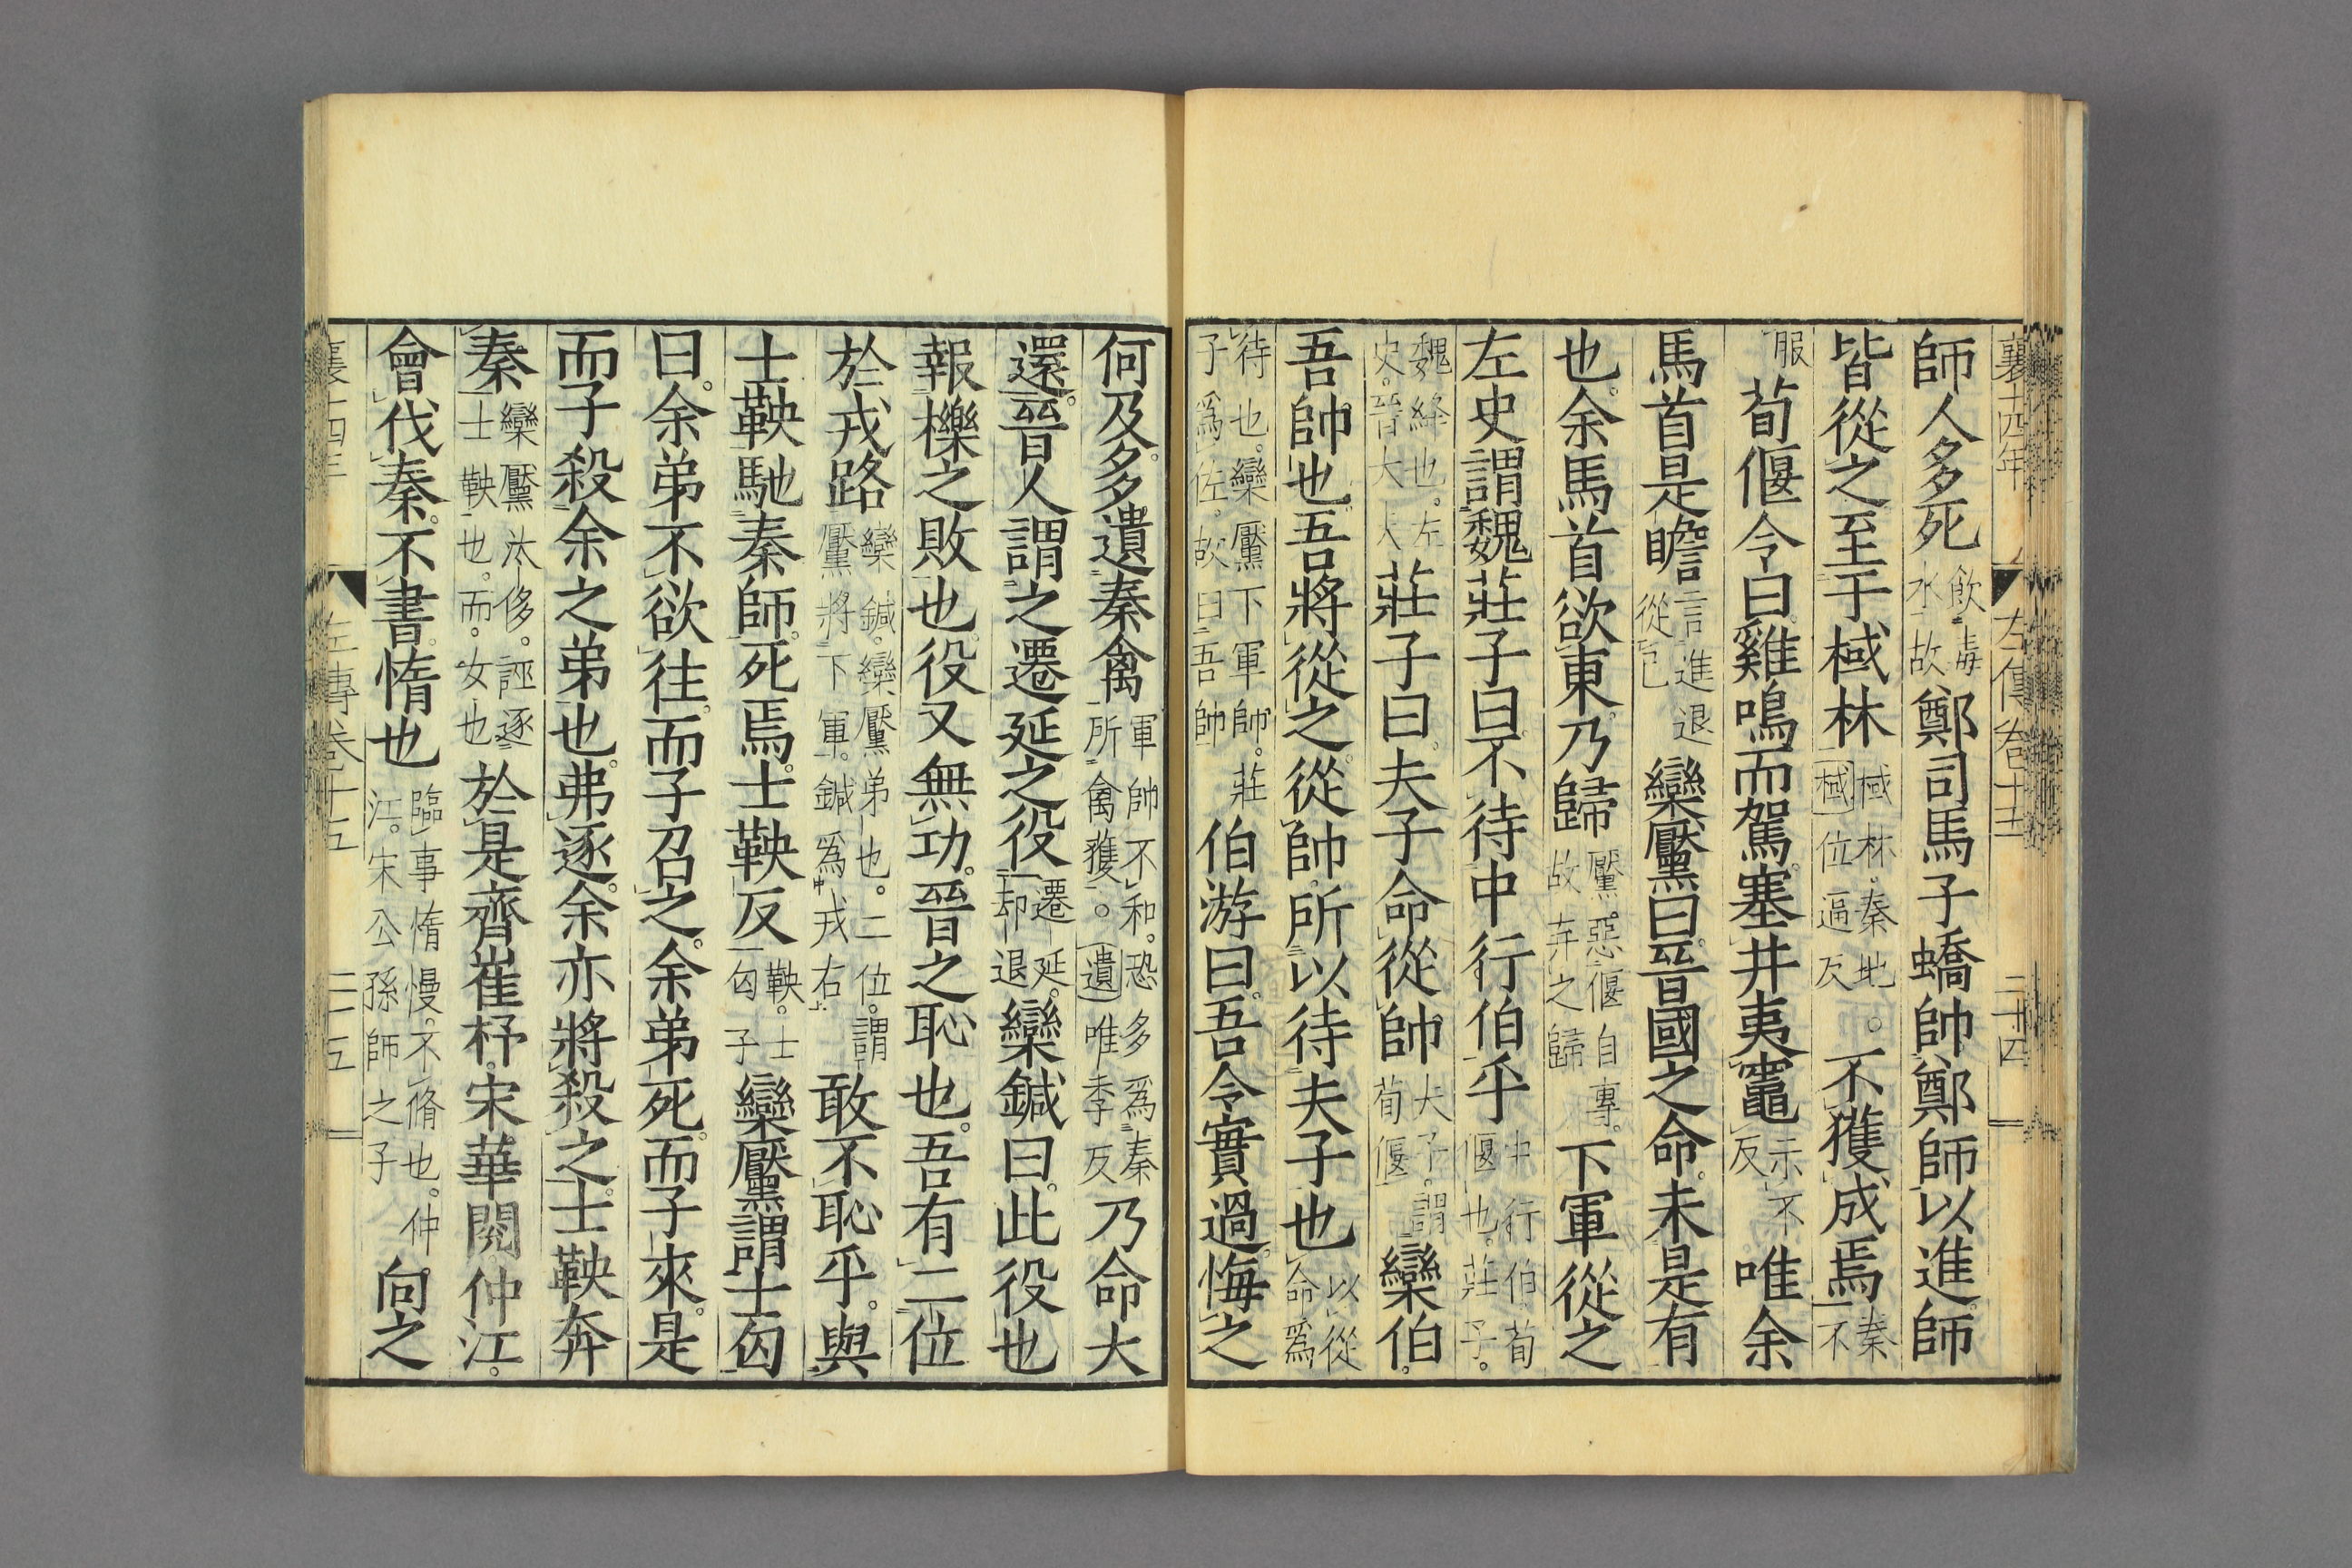 襄十四年 左傳卷十五 二十四
師人多死飲毒水故鄭司馬子蟜帥鄭師以進師
皆從之至于棫林棫林秦地。棫位逼反不獲成焉秦不
服荀偃令曰雞鳴而駕塞井夷竈示不反唯余
馬首是瞻言進退從己欒黶曰晉國之命未是有
也余馬首欲東乃歸黶惡偃自專。故弃之歸下軍從之
左史謂魏莊子曰不待中行伯乎中行伯荀偃也。莊子。
魏絳也。左史。晉大夫莊子曰夫子命從帥夫子。謂荀偃欒伯。
吾帥也吾將從之從帥所以待夫子也以從命爲
待也。欒黶下軍帥。莊子爲佐。故曰吾帥伯游曰吾令實過悔之
何及多遺秦禽軍帥不和。恐多爲秦所禽獲。遺唯季反乃命大
還晉人謂之遷延之役遷延。却退欒鍼曰此役也
報櫟之敗也役又無功。晉之恥也吾有二位
於戎路欒鍼。欒黶弟也。二位。謂黶將下軍。鍼爲戎右敢不恥乎。與
士鞅馳秦師死焉士鞅反鞅。士匃子欒黶謂士匃
曰余弟不欲往而子召之余弟死而子來是
而子殺余之弟也弗逐余亦將殺之士鞅奔
秦欒黶汰侈。誣逐士鞅也。而。女也於是齊崔杼宋華閱仲江。
會伐秦不書惰也臨事惰慢。不脩也。仲江。宋公孫師之子向之
襄十四年 左傳卷十五 二十五